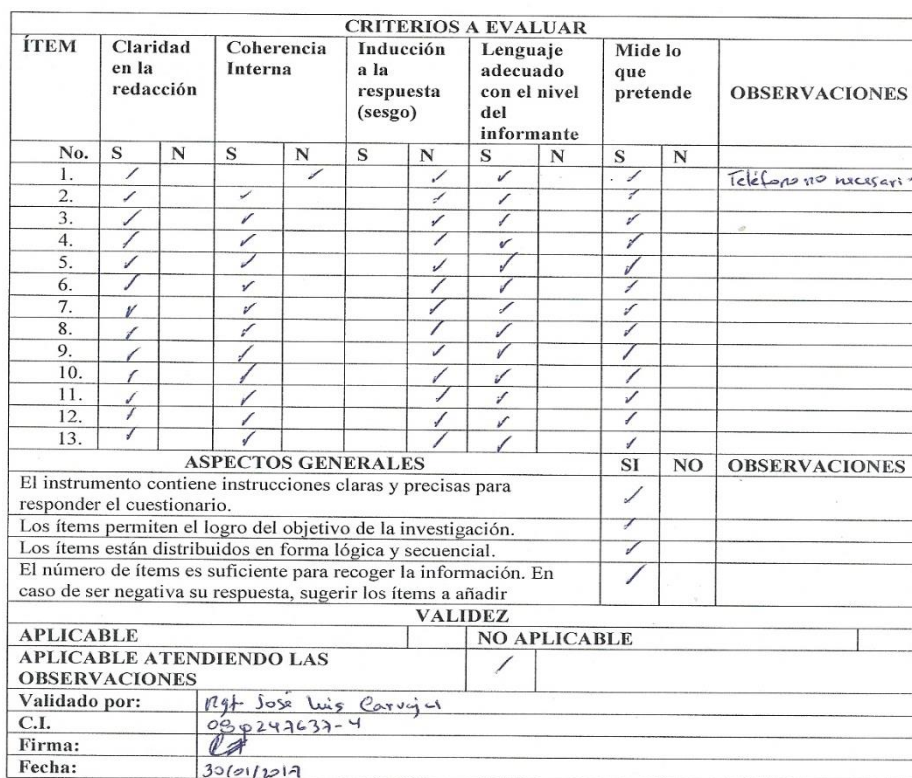 CRITERIOS A EVALUAR
ÍTEM Claridad en la redacción Coherencia Interna Inducción a la respuesta (sesgo) Lenguaje adecuado con el nivel del informante Mide lo que pretende OBSERVACIONES
No. S N S N S N S N S N
1. ✓ ✓ ✓ ✓ ✓ Teléfono no necesari
2. ✓ ✓ ✓ ✓ ✓
3. ✓ ✓ ✓ ✓ ✓
4. ✓ ✓ ✓ ✓ ✓
5. ✓ ✓ ✓ ✓ ✓
6. ✓ ✓ ✓ ✓ ✓
7. ✓ ✓ ✓ ✓ ✓
8. ✓ ✓ ✓ ✓ ✓
9. ✓ ✓ ✓ ✓ ✓
10. ✓ ✓ ✓ ✓ ✓
11. ✓ ✓ ✓ ✓ ✓
12. ✓ ✓ ✓ ✓ ✓
13. ✓ ✓ ✓ ✓ ✓
ASPECTOS GENERALES SI NO OBSERVACIONES
El instrumento contiene instrucciones claras y precisas para
responder el cuestionario. ✓
Los ítems permiten el logro del objetivo de la investigación. ✓
Los ítems están distribuidos en forma lógica y secuencial. ✓
El número de ítems es suficiente para recoger la información. En
caso de ser negativa su respuesta, sugerir los ítems a añadir ✓
VALIDEZ
APLICABLE NO APLICABLE
APLICABLE ATENDIENDO LAS
OBSERVACIONES ✓
Validado por: José Luis Carvajal
C.I.
Firma:
Fecha: 30/01/2017